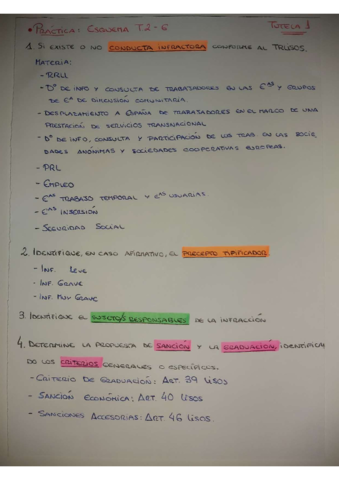 • PRÁCTICA: ESQUEMA T.2-6 TUTELA 1
1. SI EXISTE O NO CONDUCTA INFRACTORA CONFORME AL TRLISOS.
MATERIA:
- RRLL
- Dº DE INFO Y CONSULTA DE TRABAJADORES EN LAS Cªˢ Y GRUPOS
DE Cª DE DIMENSIÓN COMUNITARIA.
- DESPLAZAMIENTO A ESPAÑA DE TRABAJADORES EN EL MARCO DE UNA
PRESTACIÓN DE SERVICIOS TRANSNACIONAL
- Dº DE INFO, CONSULTA Y PARTICIPACIÓN DE LOS TRAB EN LAS SOCIE
DADES ANÓNIMAS Y SOCIEDADES COOPERATIVAS EUROPEAS.
- PRL
- EMPLEO
- Cªˢ TRABAJO TEMPORAL Y Cªˢ USUARIAS
- Cªˢ INSERCIÓN
- SEGURIDAD SOCIAL
2. IDENTIFIQUE, EN CASO AFIRMATIVO, EL PRECEPTO TIPIFICADOR.
- INF. LEVE
- INF. GRAVE
- INF. MUY GRAVE
3. IDENTIFIQUE EL SUJETO/S RESPONSABLES DE LA INFRACCIÓN
4. DETERMINE LA PROPUESTA DE SANCIÓN Y LA GRADUACIÓN, IDENTIFICAN
DO LOS CRITERIOS GENERALES O ESPECÍFICOS.
- CRITERIO DE GRADUACIÓN: ART. 39 LISOS
- SANCIÓN ECONÓMICA: ART 40 LISOS
- SANCIONES ACCESORIAS: ART. 46 LISOS.